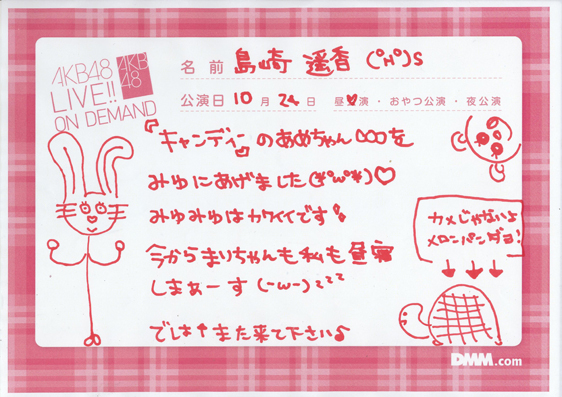 AKB48
LIVE!!
ON DEMAND
AKB
48
名前 島崎 遥香 (°H°)S
公演日 10月24日 昼♥演・おやつ公演・夜公演
『キャンディー♡のあめちゃん○○○を
みゆにあげました(*°ω°*)♡
みゆみゆはカワイイです!
今からまりちゃんも私も昼寝
しまぁーす(-ω-)zzz
では↑また来て下さい♪
カメじゃないよ
メロンパンダヨ!
↓↓↓
DMM.com